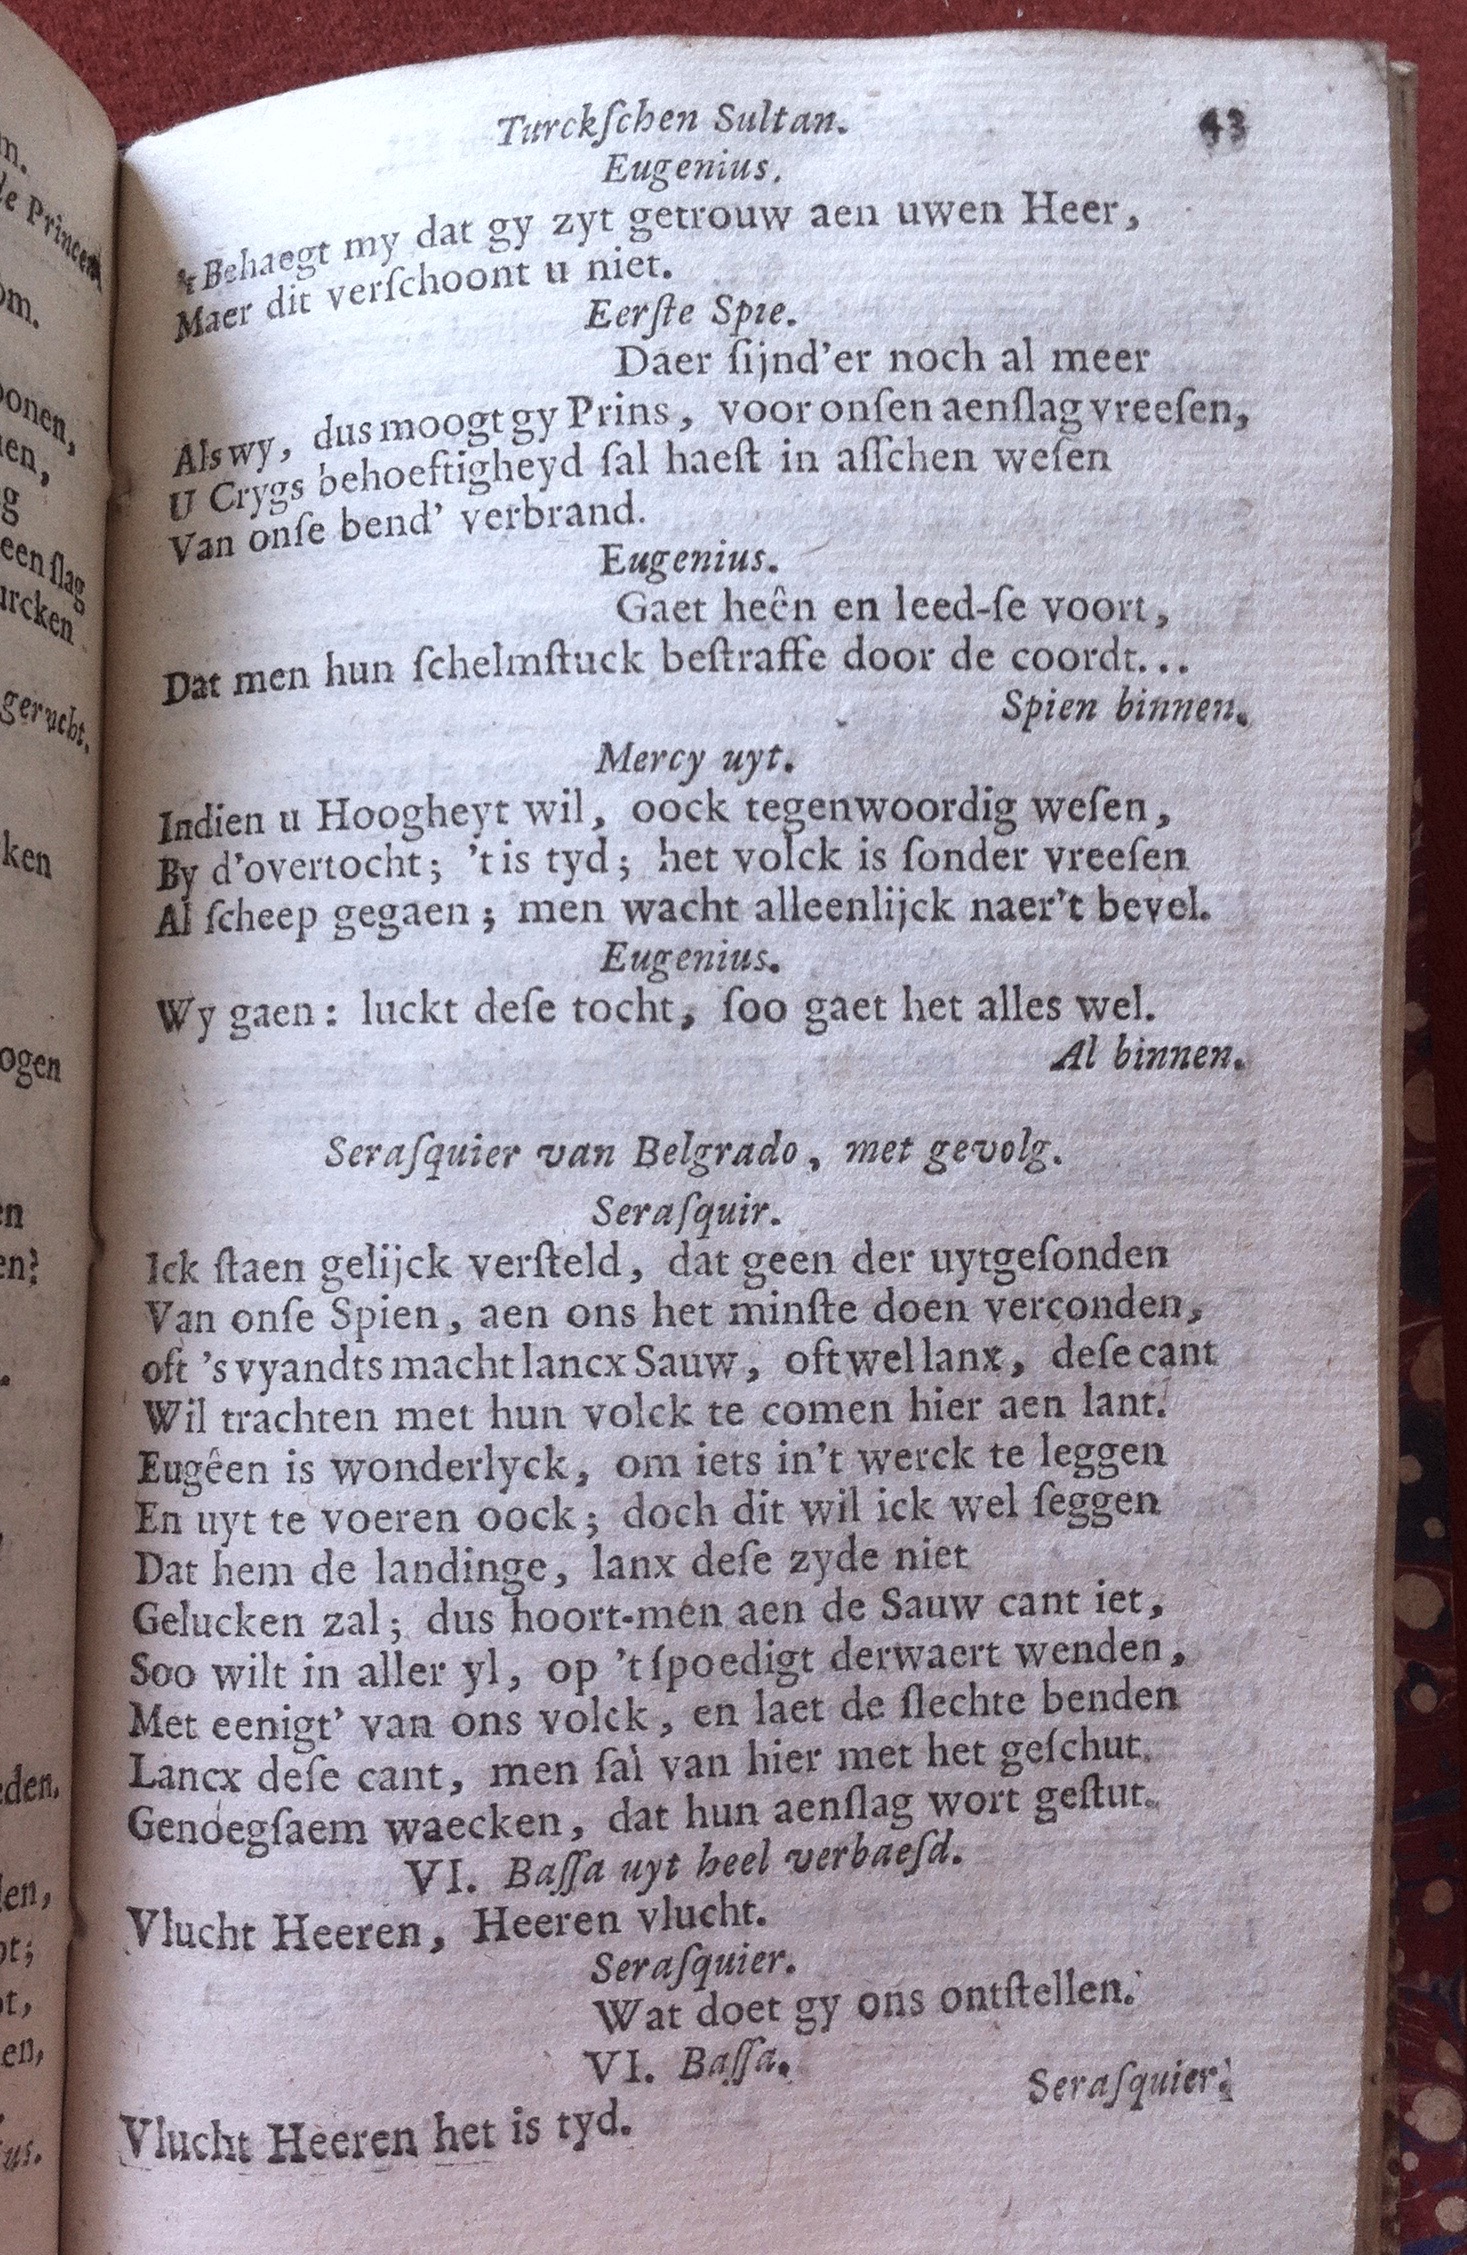 m.
le Princen
om.
oonen,
nen,
g
een ſlag
urcken
gerucht.
ken
ogen
en
en?
eden.
len,
ot;
ot,
en,
us.
Turckſchen Sultan. 43
Eugenius.
't Behaegt my dat gy zyt getrouw aen uwen Heer,
Maer dit verſchoont u niet.
Eerſte Spie.
Daer ſijnd'er noch al meer
Als wy, dus moogt gy Prins, voor onſen aenſlag vreeſen,
U Crygs behoeftigheyd ſal haeſt in aſſchen weſen
Van onſe bend' verbrand.
Eugenius.
Gaet heên en leed-ſe voort,
Dat men hun ſchelmſtuck beſtraffe door de coordt...
Spien binnen.
Mercy uyt.
Indien u Hoogheyt wil, oock tegenwoordig weſen,
By d'overtocht; 't is tyd; het volck is ſonder vreeſen
Al ſcheep gegaen; men wacht alleenlijck naer't bevel.
Eugenius.
Wy gaen: luckt deſe tocht, ſoo gaet het alles wel.
Al binnen.
Seraſquier van Belgrado, met gevolg.
Seraſquir.
Ick ſtaen gelijck verſteld, dat geen der uytgeſonden
Van onſe Spien, aen ons het minſte doen verconden,
oft 's vyandts macht lancx Sauw, oft wel lanx, deſe cant
Wil trachten met hun volck te comen hier aen lant.
Eugêen is wonderlyck, om iets in't werck te leggen
En uyt te voeren oock; doch dit wil ick wel ſeggen
Dat hem de landinge, lanx deſe zyde niet
Gelucken zal; dus hoort-men aen de Sauw cant iet,
Soo wilt in aller yl, op 't ſpoedigt derwaert wenden,
Met eenigt' van ons volck, en laet de ſlechte benden
Lancx deſe cant, men ſal van hier met het geſchut.
Genoegſaem waecken, dat hun aenſlag wort geſtut.
VI. Baſſa uyt heel verbaeſd.
Vlucht Heeren, Heeren vlucht.
Seraſquier.
Wat doet gy ons ontſtellen.
VI. Baſſa.
Vlucht Heeren het is tyd.
Seraſquier.